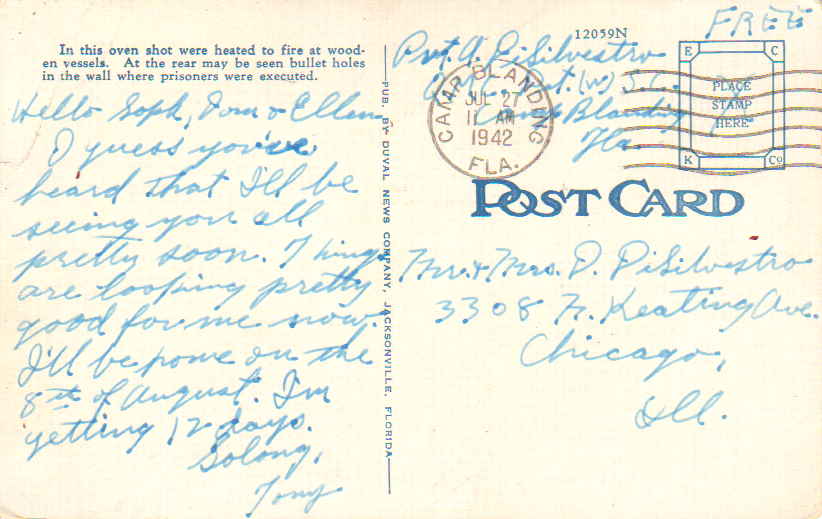 In this oven shot were heated to fire at wood-
en vessels. At the rear may be seen bullet holes
in the wall where prisoners were executed.
Hello Soph, Dom & Ellen
I guess you've
heard that I'll be
seeing you all
pretty soon. Things
are looking pretty
good for me now.
I'll be home on the
8th of August. I'm
getting 12 days.
Solong,
Tony
PUB. BY DUVAL NEWS COMPANY, JACKSONVILLE, FLORIDA
12059N
FREE
Pvt. A. DiSilvestro
Camp Blanding
Fla.
CAMP BLANDING
JUL 27
11 AM
1942
FLA.
E C
PLACE
STAMP
HERE
K Co
POST CARD
Mr. & Mrs. D. DiSilvestro
3308 N. Keating Ave.
Chicago,
Ill.